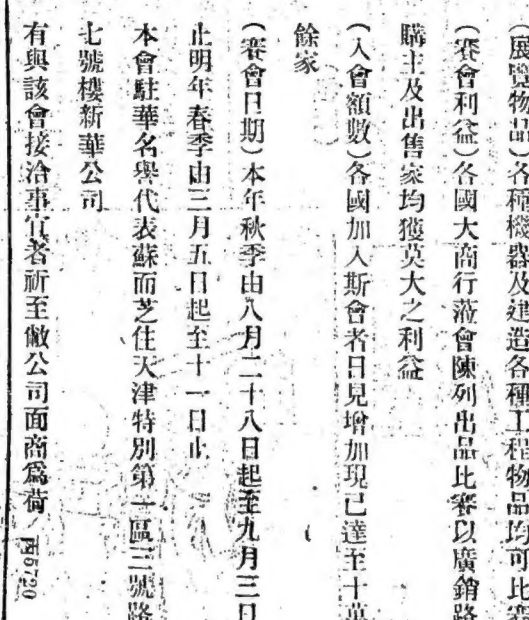 (展覽物品)各種機器及建造各種工程物品均可比賽
(賽會利益)各國大商行蒞會陳列出品比賽以廣銷路
購主及出售家均獲莫大之利益
(入會額數)各國加入斯會者日見增加現已達至十萬
餘家
(賽會日期)本年秋季由八月二十八日起至九月三日
止明年春季由三月五日起至十一日止
本會駐華名譽代表蘇而芝住天津特別第一區三號路
七號樓新華公司
有與該會接洽事宜者祈至敝公司面商爲荷 丙5720